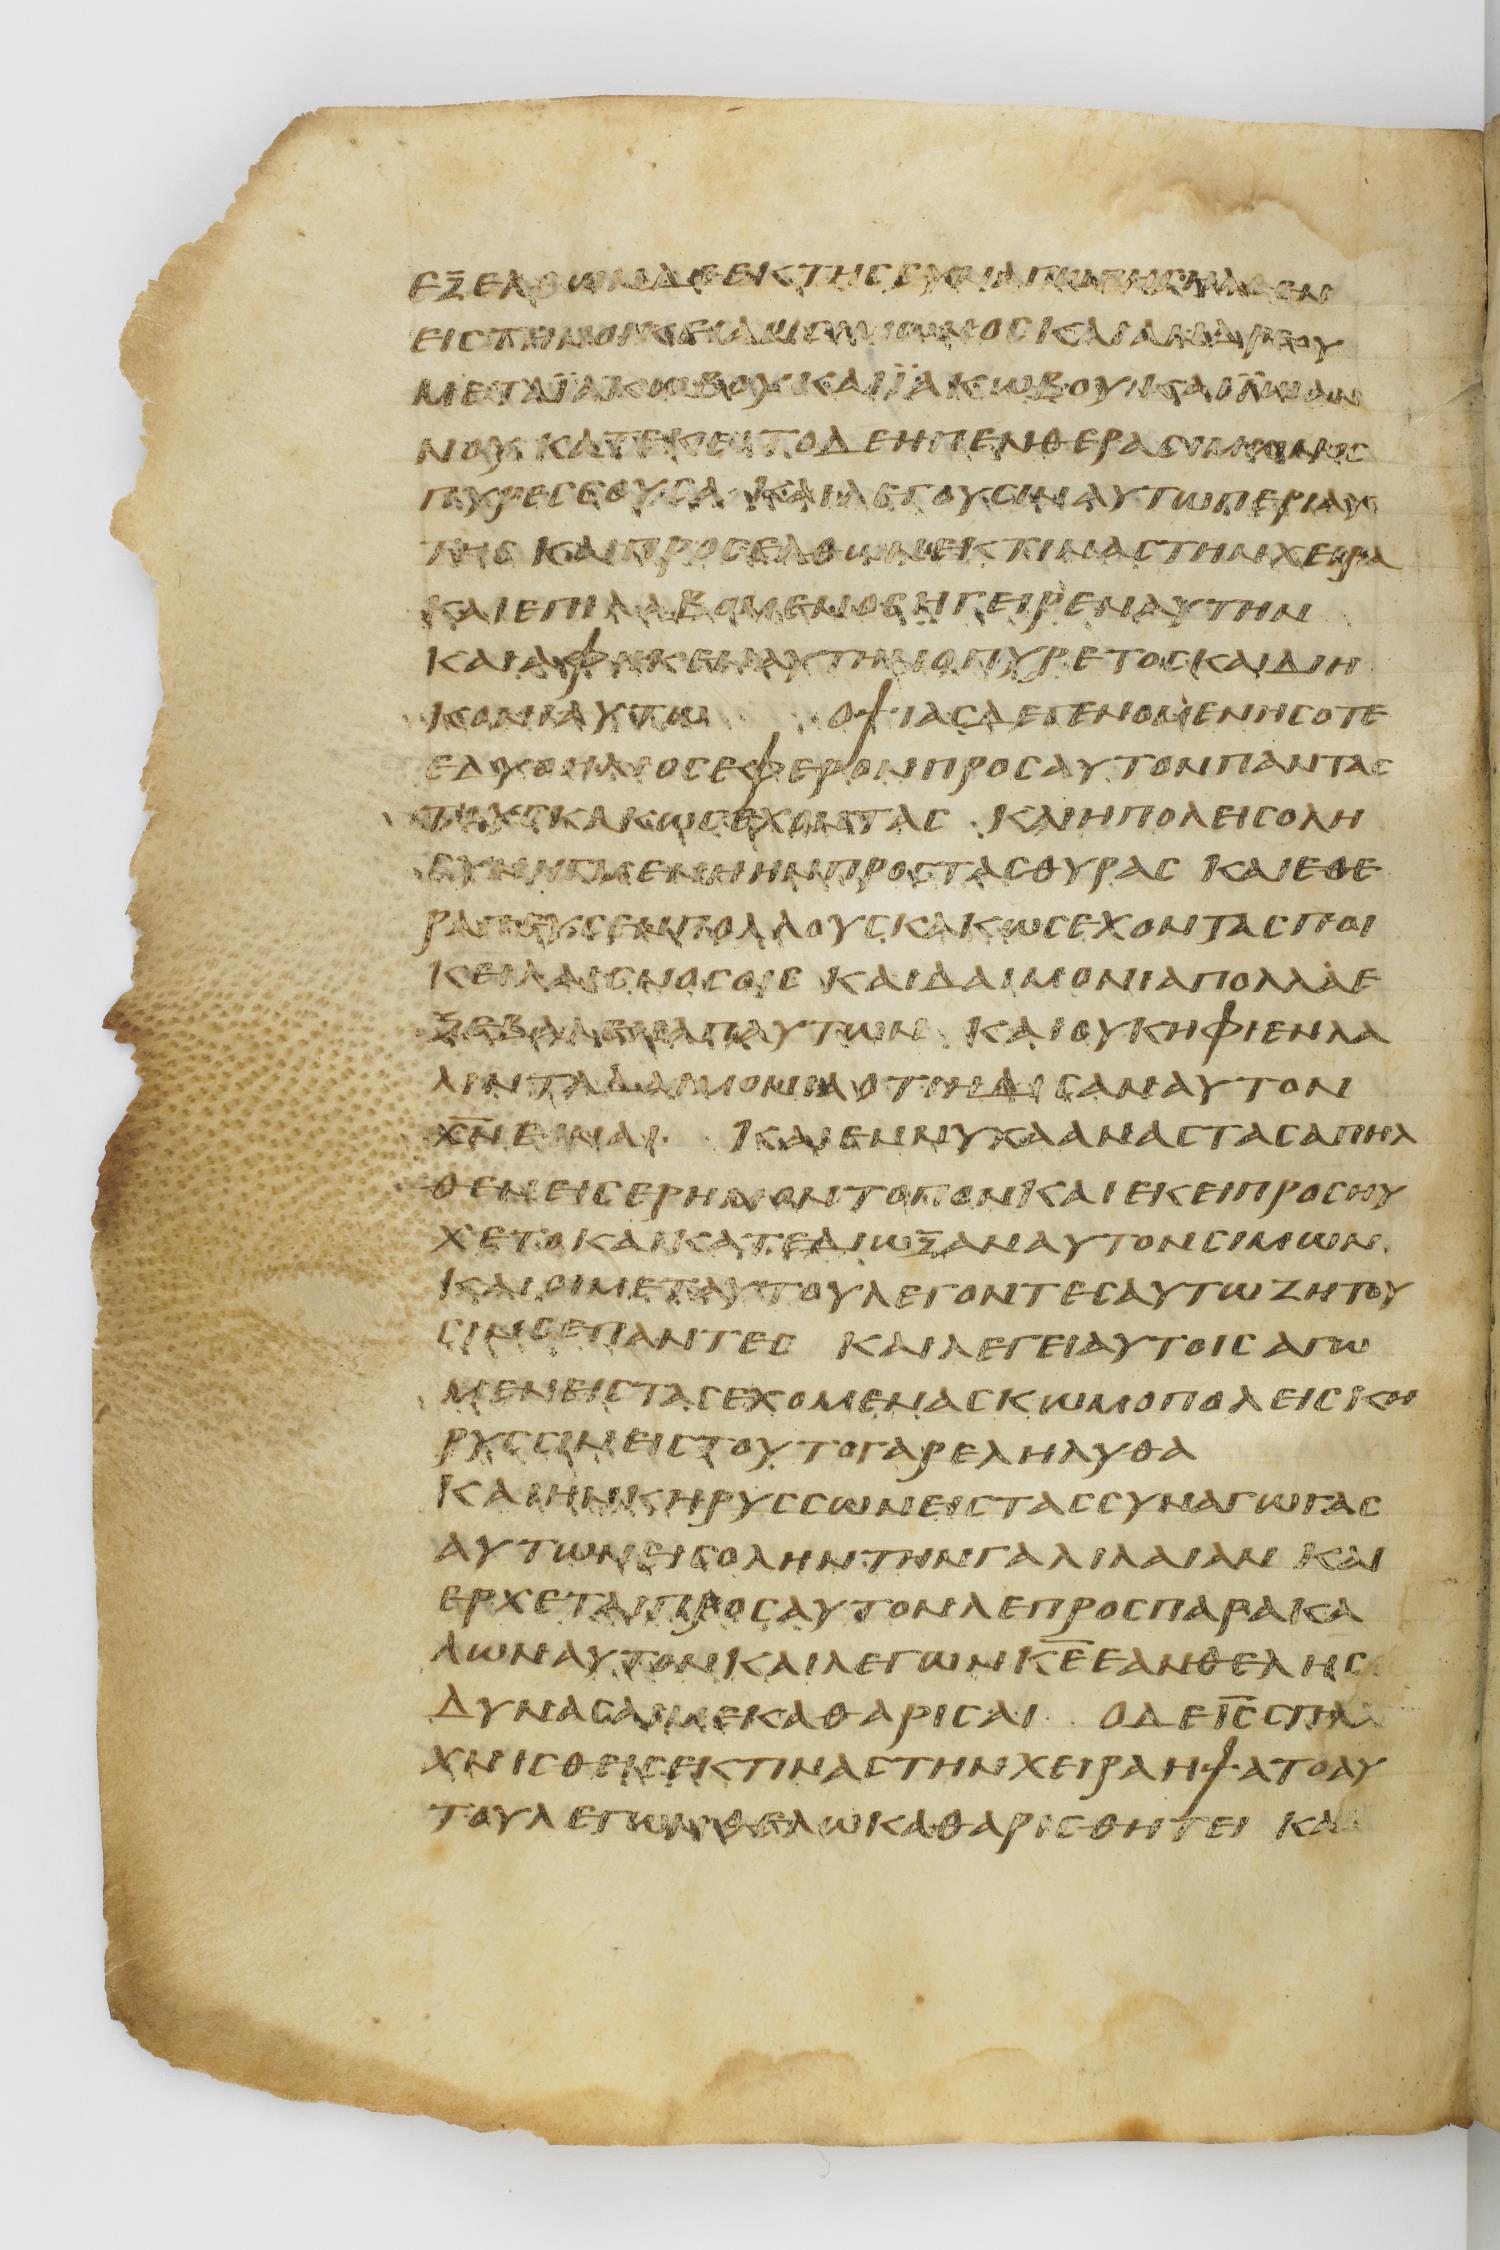 ΕΞΕΛΘΩΝΔΕΕΚΤΗΣΣΥΝΑΓΩΓΗΣΗΛΘΕΝ
ΕΙΣΤΗΝΟΙΚΕΙΑΝΣΙΜΩΝΟΣΚΑΙΑΝΔΡΕΟΥ
ΜΕΤΑΪΑΚΩΒΟΥΚΑΙΪΩΑΝ
ΝΟΥ ΚΑΤΕΚΕΙΤΟΔΕΗΠΕΝΘΕΡΑΣΙΜΩΝΟΣ
ΠΥΡΕΣΣΟΥΣΑ ΚΑΙΛΕΓΟΥΣΙΝΑΥΤΩΠΕΡΙΑΥ
ΤΗΣ ΚΑΙΠΡΟΣΕΛΘΩΝΕΚΤΙΝΑΣΤΗΝΧΕΙΡΑ
ΚΑΙΕΠΙΛΑΒΟΜΕΝΟΣΗΓΕΙΡΕΝΑΥΤΗΝ
ΚΑΙΑΦΗΚΕΝΑΥΤΗΝΟΠΥΡΕΤΟΣΚΑΙΔΙΗ
ΚΟΝΙΑΥΤΩ ΟΨΙΑΣΔΕΓΕΝΟΜΕΝΗΣΟΤΕ
ΕΔΥΟΗΛΙΟΣΕΦΕΡΟΝΠΡΟΣΑΥΤΟΝΠΑΝΤΑΣ
ΤΟΥΣΚΑΚΩΣΕΧΟΝΤΑΣ ΚΑΙΗΠΟΛΕΙΣΟΛΗ
ΣΥΝΗΓΜΕΝΗΗΝΠΡΟΣΤΑΣΘΥΡΑΣ ΚΑΙΕΘΕ
ΡΑΠΕΥΣΕΝΠΟΛΛΟΥΣΚΑΚΩΣΕΧΟΝΤΑΣΠΟΙ
ΚΕΙΛΑΙΣΝΟΣΟΙΣ ΚΑΙΔΑΙΜΟΝΙΑΠΟΛΛΑΕ
ΞΕΒΑΛΕΝΑΠΑΥΤΩΝ ΚΑΙΟΥΚΗΦΙΕΝΛΑ
ΛΙΝΤΑΔΑΙΜΟΝΙΑΟΤΙΗΔΙΣΑΝΑΥΤΟΝ
Χ̅Ν̅ΕΙΝΑΙ ΚΑΙΕΝΝΥΧΑΑΝΑΣΤΑΣΑΠΗΛ
ΘΕΝΕΙΣΕΡΗΜΟΝΤΟΠΟΝΚΑΙΕΚΕΙΠΡΟΣΗΥ
ΧΕΤΟΚΑΙΚΑΤΕΔΙΩΞΑΝΑΥΤΟΝΣΙΜΩΝ
ΚΑΙΟΙΜΕΤΑΥΤΟΥΛΕΓΟΝΤΕΣΑΥΤΩΖΗΤΟΥ
ΣΙΝΣΕΠΑΝΤΕΣ ΚΑΙΛΕΓΕΙΑΥΤΟΙΣΑΓΩ
ΜΕΝΕΙΣΤΑΣΕΧΟΜΕΝΑΣΚΩΜΟΠΟΛΕΙΣΚΗ
ΡΥΣΣΙΝΕΙΣΤΟΥΤΟΓΑΡΕΛΗΛΥΘΑ
ΚΑΙΗΝΚΗΡΥΣΣΩΝΕΙΣΤΑΣΣΥΝΑΓΩΓΑΣ
ΑΥΤΩΝΕΙΣΟΛΗΝΤΗΝΓΑΛΙΛΑΙΑΝ ΚΑΙ
ΕΡΧΕΤΑΙΠΡΟΣΑΥΤΟΝΛΕΠΡΟΣΠΑΡΑΚΑ
ΛΩΝΑΥΤΟΝΚΑΙΛΕΓΩΝΚ̅Ε̅ΕΑΝΘΕΛΗΣ
ΔΥΝΑΣΑΙΜΕΚΑΘΑΡΙΣΑΙ ΟΔΕΙ̅Σ̅ΣΠΛΑ
ΧΝΙΣΘΕΙΣΕΚΤΙΝΑΣΤΗΝΧΕΙΡΑΗΨΑΤΟΑΥ
ΤΟΥΛΕΓΩΝΘΕΛΩΚΑΘΑΡΙΣΘΗΤΕΙ ΚΑΙ